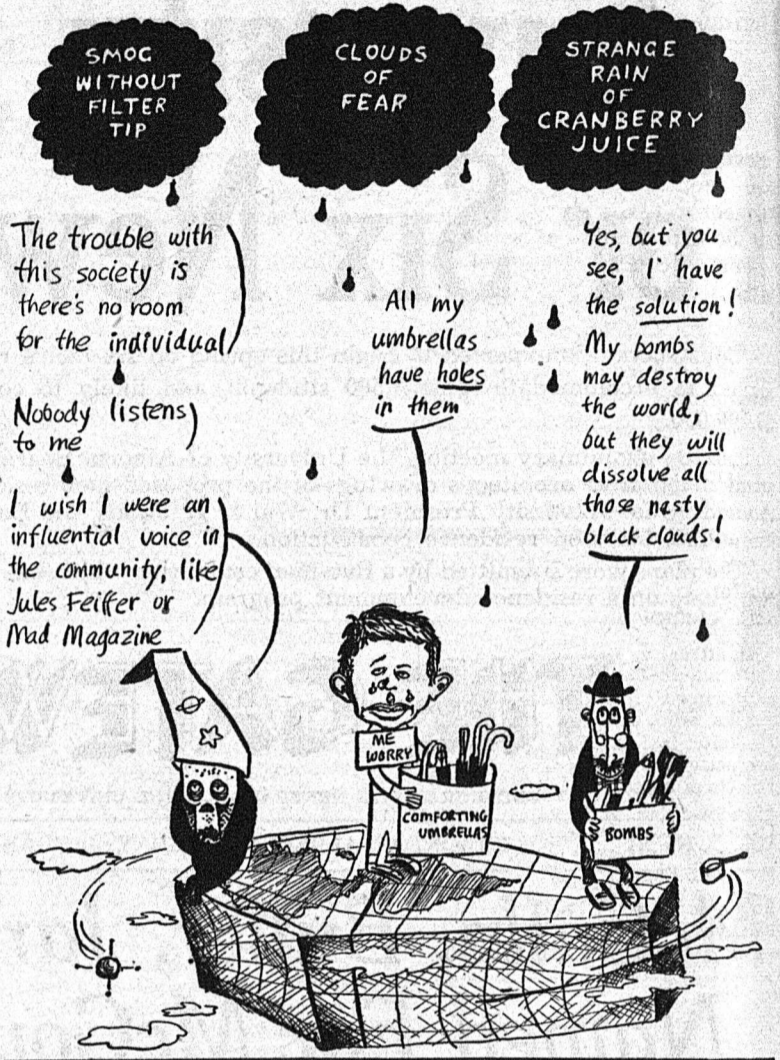 SMOG
WITHOUT
FILTER
TIP
CLOUDS
OF
FEAR
STRANGE
RAIN
OF
CRANBERRY
JUICE
The trouble with
this society is
there's no room
for the individual
Nobody listens
to me
I wish I were an
influential voice in
the community, like
Jules Feiffer or
Mad Magazine
All my
umbrellas
have holes
in them
Yes, but you
see, I have
the solution!
My bombs
may destroy
the world,
but they will
dissolve all
those nasty
black clouds!
ME
WORRY
COMFORTING
UMBRELLAS
BOMBS